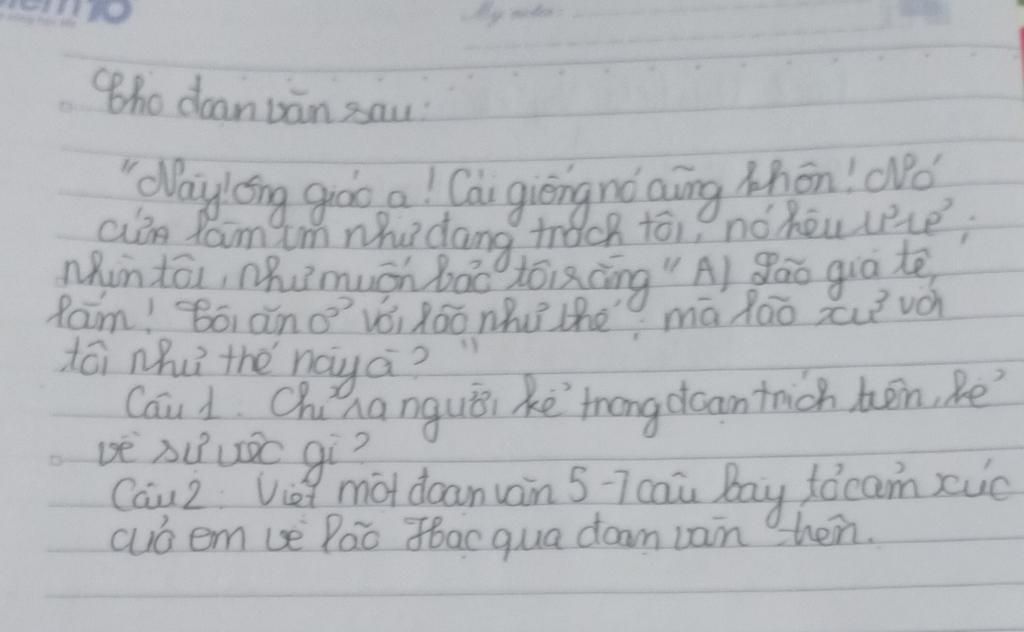 My notes:
Cho đoạn văn sau:
"Này! ông giáo ạ! Cái giống nó cũng khôn! Nó
cứ làm im như đang trách tôi, nó kêu ư ử,
nhìn tôi, như muốn bảo tôi rằng "A! Lão già tệ
lắm! Tôi ăn ở với lão như thế mà lão xử với
tôi như thế này à?"
Câu 1. Chỉ ra người kể trong đoạn trích trên, kể
về sự việc gì?
Câu 2. Viết một đoạn văn 5-7 câu bày tỏ cảm xúc
của em về lão Hạc qua đoạn văn trên.